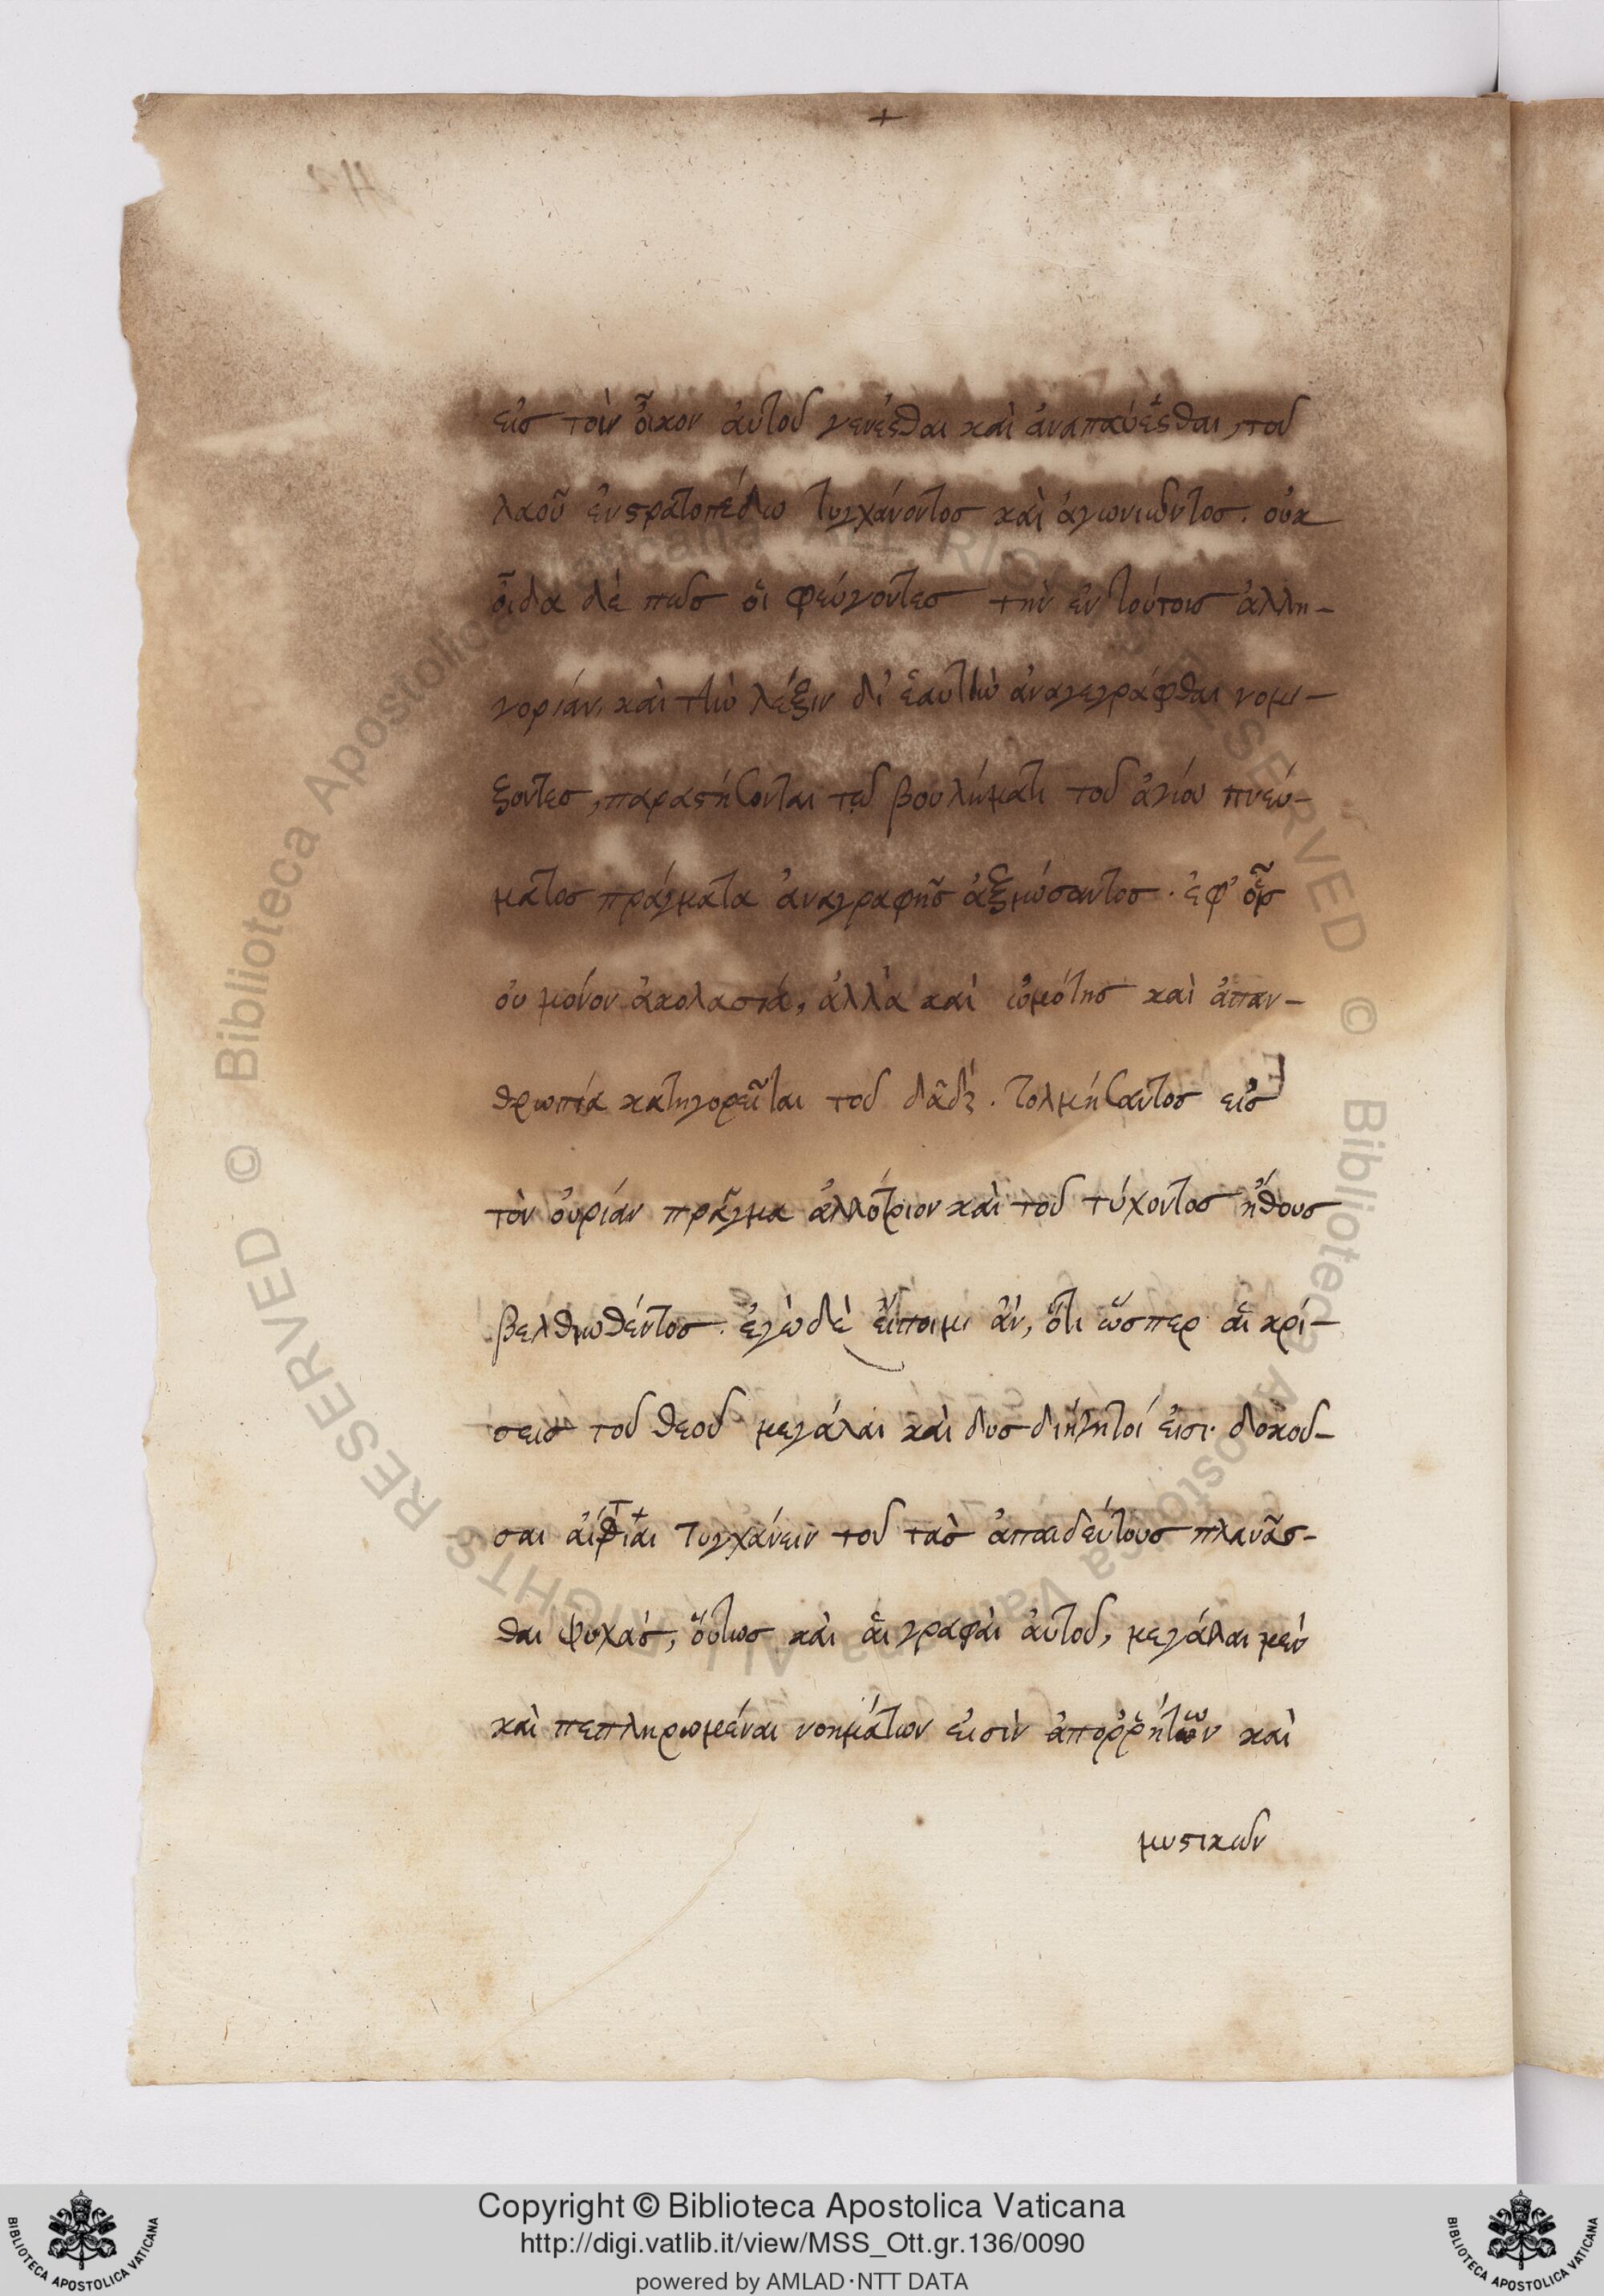 +
εἰς τὸν οἶκον αὐτοῦ γενέσθαι καὶ ἀναπαύεσθαι, τοῦ
λαοῦ ἐν στρατοπέδῳ τυγχάνοντος καὶ ἀγωνιῶντος. οὐκ
οἶδα δέ πως οἱ φεύγοντες τὴν ἐν τούτοις ἀλλη-
γορίαν, καὶ τὴν λέξιν δι' ἑαυτὴν ἀναγεγράφθαι νομί-
ζοντες, παραστήσονται τῷ βουλήματι τοῦ ἁγίου πνεύ-
ματος πράγματα ἀναγραφῆς ἀξιώσαντος. ἐφ' οἷς
οὐ μόνον ἀκολασία, ἀλλὰ καὶ ὠμότης καὶ ἀπαν-
θρωπία κατηγορεῖται τοῦ δαδ. τολμήσαντος εἰς
τὸν οὐρίαν πρᾶγμα ἀλλότριον καὶ τοῦ τύχοντος ἤθους
βελθιωθέντος. ἐγὼ δὲ εἴποιμι ἂν, ὅτι ὥσπερ αἱ κρί-
σεις τοῦ θεοῦ μεγάλαι καὶ δυσδιήγητοί εἰσι. δοκοῦ-
σαι αἴτιαι τυγχάνειν τοῦ τὰς ἀπαιδεύτους πλανᾶσ-
θαι ψυχάς, οὕτως καὶ αἱ γραφαὶ αὐτοῦ, μεγάλαι μὲν
καὶ πεπληρωμέναι νοημάτων εἰσὶν ἀπορῥήτων καὶ
μυστικῶν
© Biblioteca Apostolica Vaticana ALL RIGHTS RESERVED © Biblioteca Apostolica Vaticana ALL RIGHTS RESERVED
Copyright © Biblioteca Apostolica Vaticana
http://digi.vatlib.it/view/MSS_Ott.gr.136/0090
powered by AMLAD·NTT DATA
BIBLIOTECA APOSTOLICA VATICANA
BIBLIOTECA APOSTOLICA VATICANA